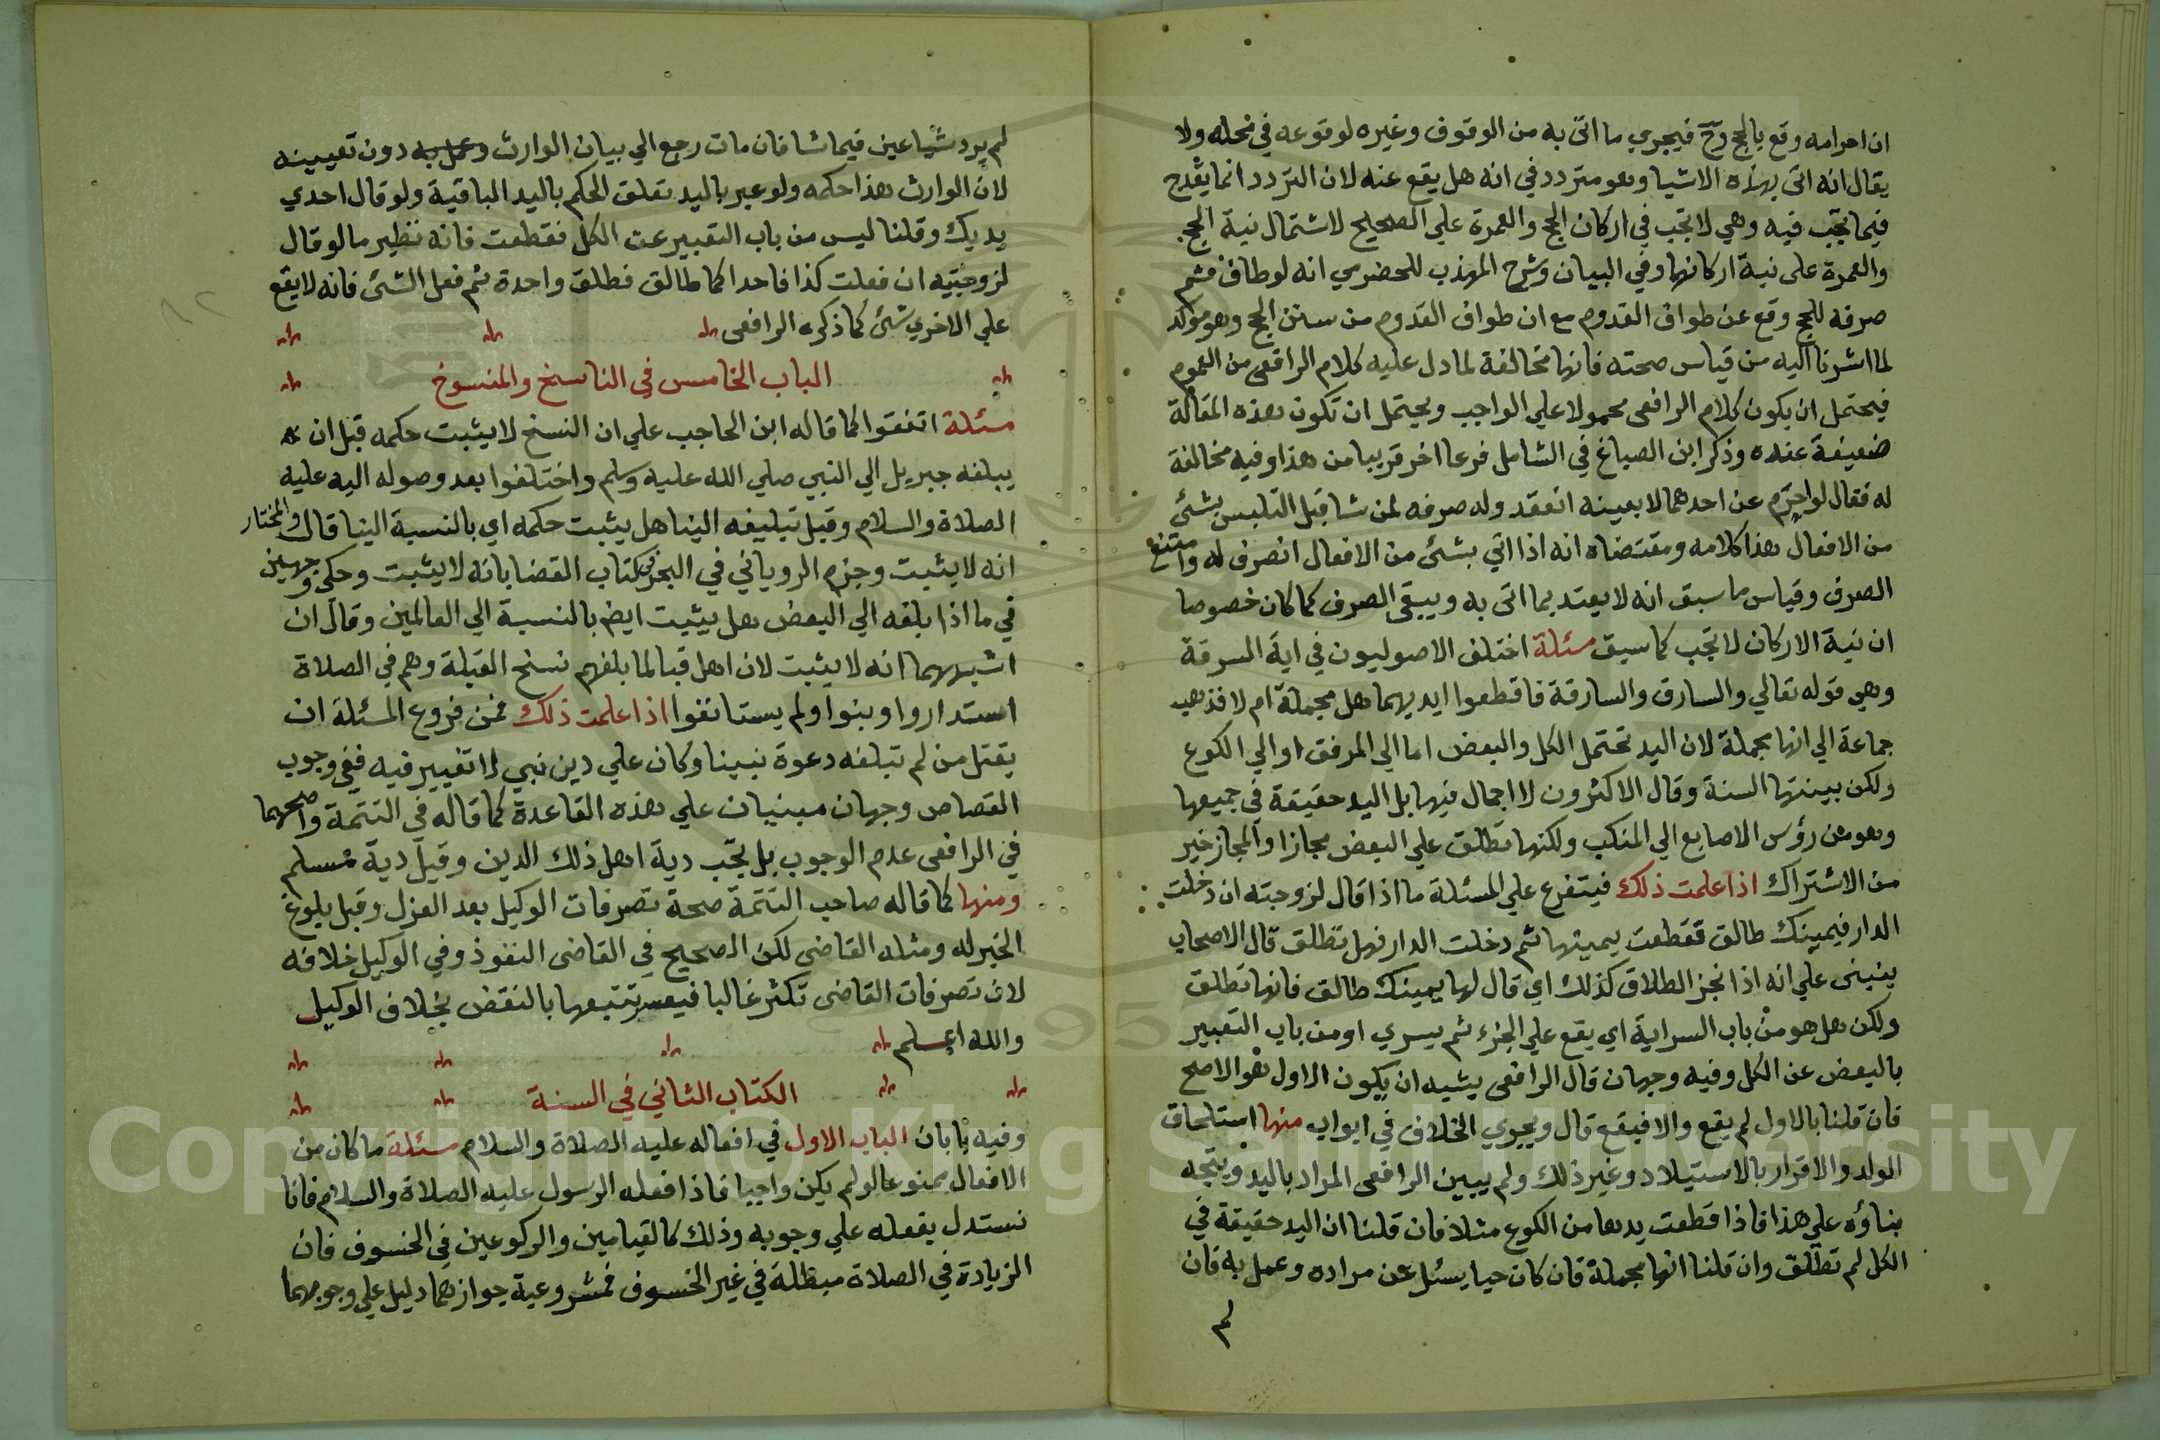 ان احرامه وقع بالحج وح فيجري ما اتى به من الوقوف وغيره لوقوعه في محله ولا
يقال انه اتى بهذه الاشيا وهو متردد في انه هل يقع عنه لان التردد انما يقدح
فيما تجب فيه وهي لا تجب في اركان الحج والعمرة علي الصحيح لاشتمال نية الحج
والعمرة على نية اركانها وفي البيان وشرح المهذب للحضرمي انه لو طاف ثم
صرفه للحج وقع عن طواف القدوم مع ان طواف القدوم من سنن الحج وهو موكد
لما اشرنا اليه من قياس صحته فانها مخالفة لما دل عليه كلام الرافعى من العموم
فيحتمل ان يكون كلام الرافعى محمولا علي الواجب ويحتمل ان تكون هذه المقالة
ضعيفة عنده وذكر ابن الصباغ في الشامل فرعا اخر قريبا من هذا وفيه مخالفة
له فقال لو احرم عن احدهما لا بعينه انعقد وله صرفه لمن شا قبل التلبس بشئ
من الافعال هذا كلامه ومقتضاه انه اذا اتي بشئ من الافعال انصرف له وامتنع
الصرف وقياس ما سبق انه لا يعتد بما اتى به ويبقى الصرف كما كان خصوصا
ان نية الاركان لا تجب كما سبق مسئلة اختلف الاصوليون في اية السرقة
وهي قوله تعالي والسارق والسارقة فاقطعوا ايديهما هل مجملة ام لا فذهب
جماعة الي انها مجملة لان اليد تحتمل الكل والبعض اما الي المرفق او الي الكوع
ولكن بينتها السنة وقال الاكثرون لا اجمال فيها بل اليد حقيقة في جميعها
وهو من رؤس الاصابع الي المنكب ولكنها تطلق علي البعض مجازا والمجاز خير
من الاشتراك اذا علمت ذلك فيتفرع علي المسئلة ما اذا قال لزوجته ان دخلت
الدار فيمينك طالق فقطعت يمينها ثم دخلت الدار فهل تطلق قال الاصحاب
ينبنى علي انه اذا نجز الطلاق كذلك اي قال لها يمينك طالق فانها تطلق
ولكن هل هو من باب السراية اي يقع علي الجزء ثم يسري او من باب التعبير
بالبعض عن الكل وفيه وجهان قال الرافعى يشبه ان يكون الاول هو الاصح
فان قلنا بالاول لم يقع والا فيقع قال ويجري الخلاف في ابواب منها استلحاق
الولد والاقرار بالاستيلاد وغير ذلك ولم يبين الرافعى المراد باليد ويتجه
بناؤه علي هذا فاذا قطعت يدها من الكوع مثلا فان قلنا ان اليد حقيقة في
الكل لم تطلق وان قلنا انها مجملة فان كان حيا يسئل عن مراده وعمل به فان
لم
لم يرد شيا عين فيما شا فان مات رجع الي بيان الوارث وعمل به دون تعيينه
لان الوارث هذا حكمه ولو عبر باليد تعلق الحكم باليد الباقية ولو قال احدي
يديك وقلنا ليس من باب التعبير عن الكل فقطعت فانه نظير ما لو قال
لزوجتيه ان فعلت كذا فاحداكما طالق فطلق واحدة ثم فعل الشئ فانه لا يقع
علي الاخري شئ كما ذكره الرافعى
الباب الخامس في الناسخ والمنسوخ
مسئلة اتفقوا كما قاله ابن الحاجب علي ان النسخ لا يثبت حكمه قبل ان
يبلغه جبريل الي النبي صلي الله عليه وسلم واختلفوا بعد وصوله اليه عليه
الصلاة والسلام وقبل تبليغه الينا هل يثبت حكمه اي بالنسبة الينا قال والمختار
انه لا يثبت وجزم الروياني في البحر في كتاب القضا بانه لا يثبت وحكى وجهين
في ما اذا بلغه الي البعض هل يثبت ايض بالنسبة الي العالمين وقال ان
اشبههما انه لا يثبت لان اهل قبا لما بلغهم نسخ القبلة وهم في الصلاة
استداروا وبنوا ولم يستانفوا اذا علمت ذلك فمن فروع المسئلة ان
يقتل من لم تبلغه دعوة نبينا وكان علي دين نبي لا تغيير فيه ففي وجوب
القصاص وجهان مبنيان علي هذه القاعدة كما قاله في التتمة واصحهما
في الرافعى عدم الوجوب بل تجب دية اهل ذلك الدين وقيل دية مسلم
ومنها كما قاله صاحب التتمة صحة تصرفات الوكيل بعد العزل وقبل بلوغ
الخبر له ومثله القاضي لكن الصحيح في القاضى النفوذ وفي الوكيل خلافه
لان تصرفات القاضى تكثر غالبا فيعسر تتبعها بالنقض بخلاف الوكيل
والله اعلم
الكتاب الثاني في السنة
وفيه بابان الباب الاول في افعاله عليه الصلاة والسلام مسئلة ما كان من
الافعال ممنوعا لو لم يكن واجبا فاذا فعله الرسول عليه الصلاة والسلام فانا
نستدل بفعله علي وجوبه وذلك كالقيامين والركوعين في الخسوف فان
الزيادة في الصلاة مبطلة في غير الخسوف فمشروعية جوازهما دليل علي وجوبهما
Copyright © King Saud University